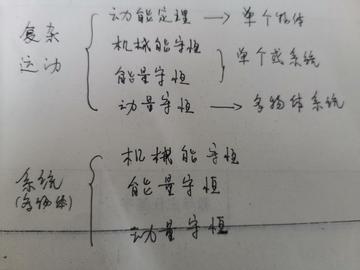 动能定理 → 单个物体
复杂
机械能守恒
单个或系统
运动
能量守恒
动量守恒 → 多物体系统
机械能守恒
系统
能量守恒
(多物体)
动量守恒